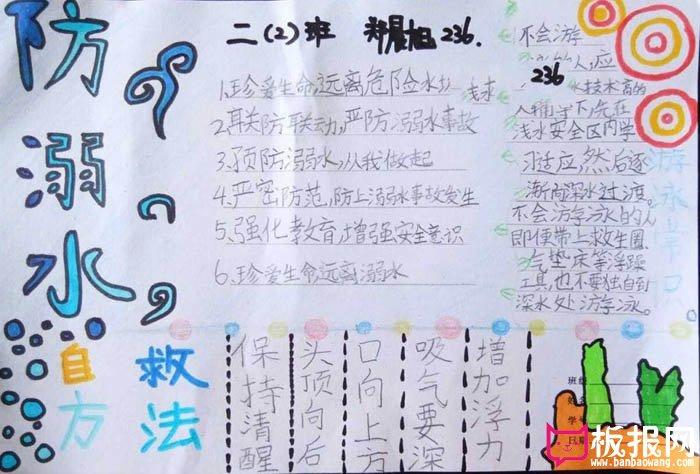 防溺水
二（2）班 郑晨旭 236.
1、珍爱生命，远离危险水域
2、联防联动，严防溺水事故
3、预防溺水，从我做起
4、严密防范，防上溺水事故发生
5、强化教育，增强安全意识
6、珍爱生命远离溺水
不会游
人,应
236
水技术高的
浅水安全区内学
习适应,然后逐
渐向深水过渡。
不会游泳的人
即使带上救生圈
气垫床等浮躁
工具,也不要独自到
深水处游泳。
游泳
自救
方法
保持清醒
头顶向后
口向上方
吸气要深
增加浮力
班级
学
日期
板报网
www.banbaowang.com